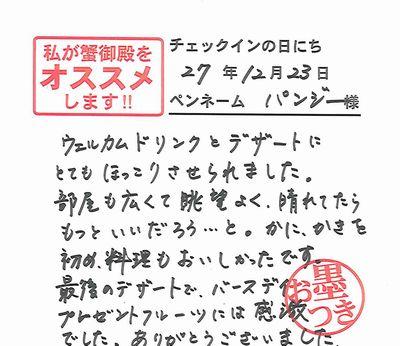 私が蟹御殿を
オススメ
します!!
チェックインの日にち
27年12月23日
ペンネーム パンジー様
ウェルカムドリンクとデザートに
とてもほっこりさせられました。
部屋も広くて眺望よく、晴れてたら
もっといいだろう…と。かに、かきを
初め、料理もおいしかったです。
最後のデザートで、バースデイ
プレゼントフルーツには感激
でした。ありがとうございました。
墨
おつき